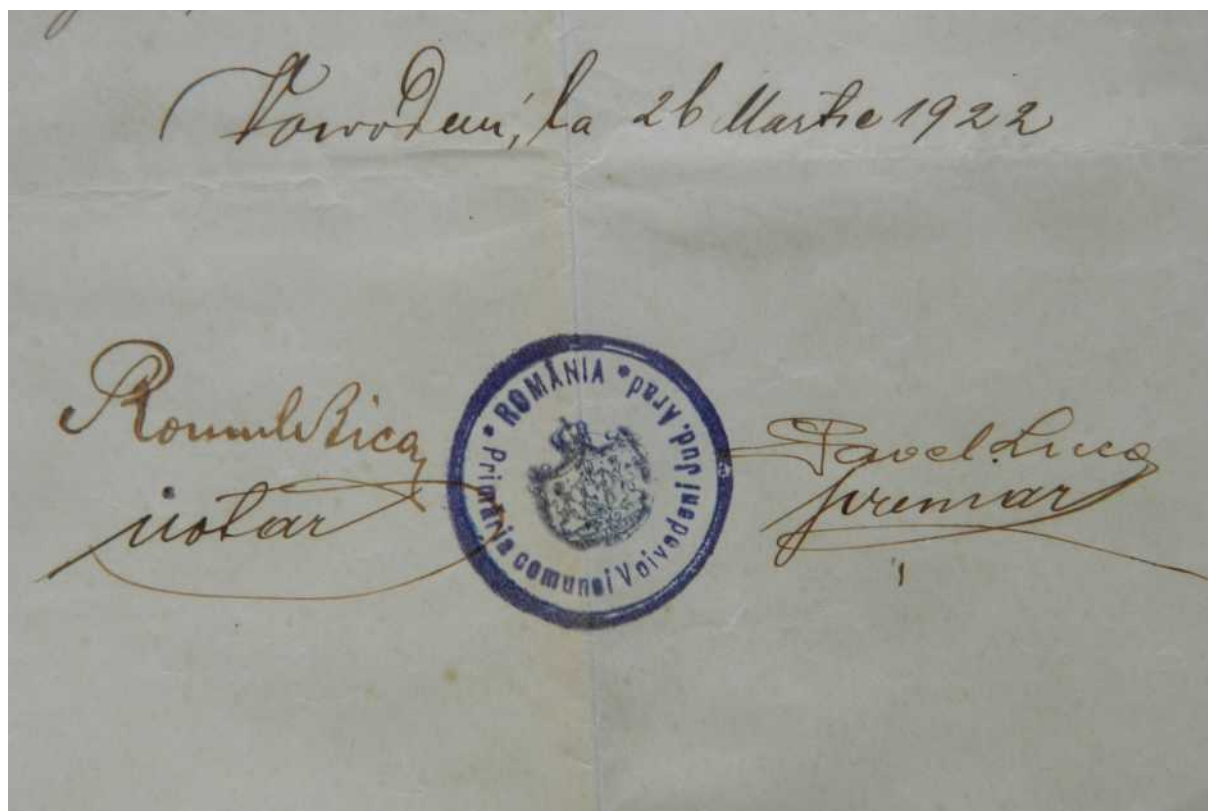 Voivodeni, la 26 Martie 1922
Romul Bica
notar
* ROMÂNIA *
Primăria comunei Voivodeni Jud. Arad
Pavel Luca
primar